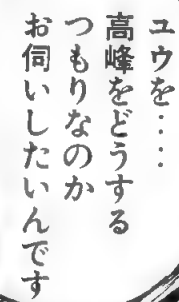 ユウを‥‥
高峰をどうする
つもりなのか
お伺いしたいんです